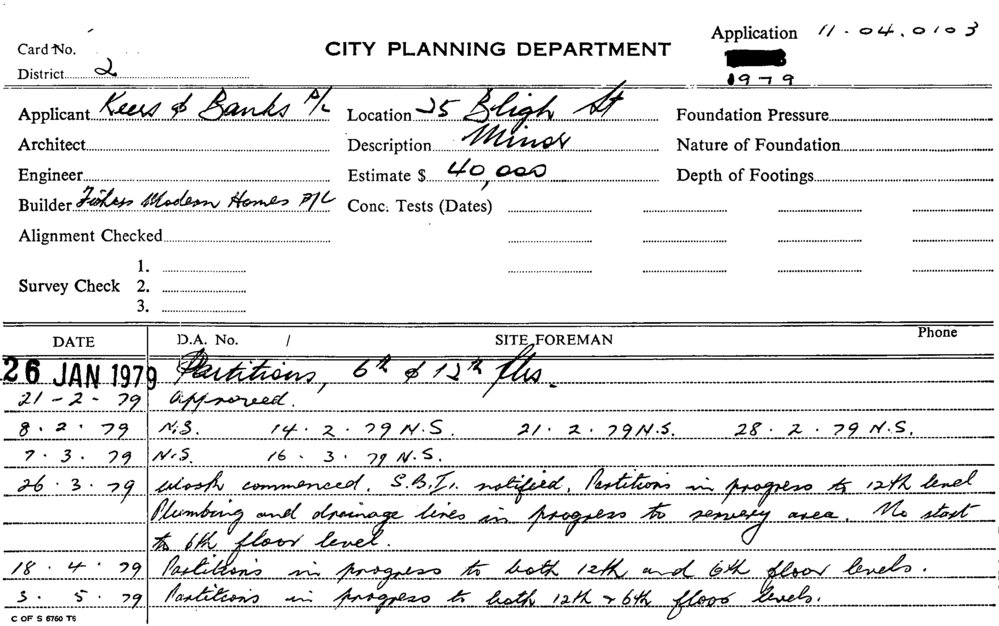 Application 11.04.0103
Card No.
CITY PLANNING DEPARTMENT
District 2
1979
Applicant Keers & Banks P/L Location 25 Bligh St Foundation Pressure
Architect Description Minor Nature of Foundation
Engineer Estimate $ 40,000 Depth of Footings
Builder Modern Homes P/L Conc. Tests (Dates)
Alignment Checked
1.
Survey Check 2.
3.
DATE D.A. No. / SITE FOREMAN Phone
26 JAN 1979 Partitions, 6th & 12th flrs.
21-2-79 Approved.
8.2.79 N.S. 14.2.79 N.S. 21.2.79 N.S. 28.2.79 N.S.
7.3.79 N.S. 16.3.79 N.S.
26.3.79 Work commenced. S.B.I. notified. Partitions in progress to 12th level
Plumbing and drainage lines in progress to servery area. No start
to 6th floor level.
18.4.79 Partitions in progress to both 12th and 6th floor levels.
3.5.79 Partitions in progress to both 12th & 6th floor levels.
C OF S 6760 T6